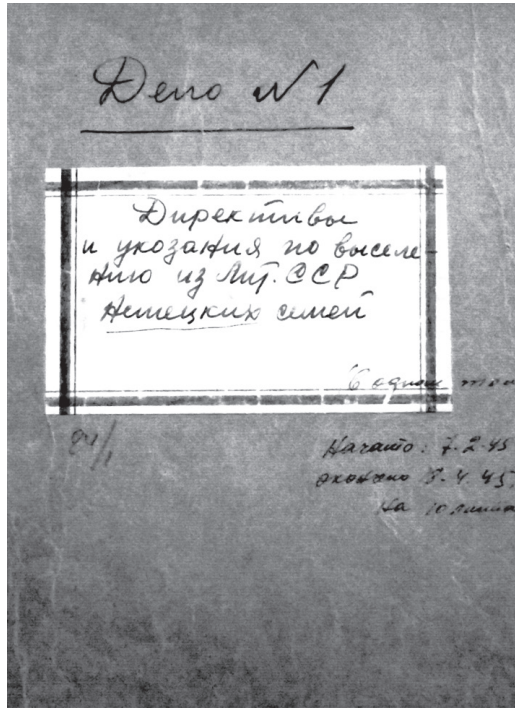 Дело № 1
Директивы
и указания по выселе-
нию из Лит. ССР
немецких семей
В одном том
Начато: 7.2.45
окончено 8.4.45
на 10 листа